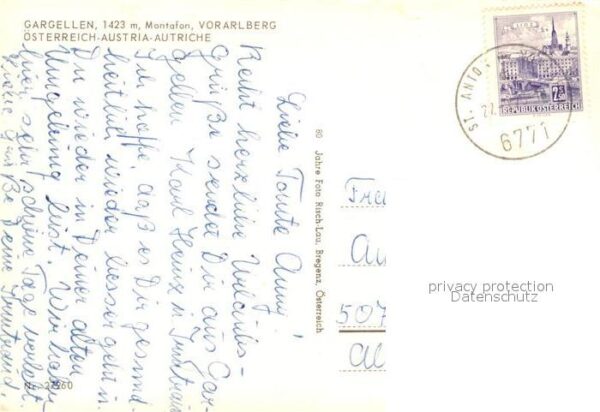 GARGELLEN, 1423 m, Montafon, VORARLBERG
ÖSTERREICH-AUSTRIA-AUTRICHE
Liebe Tante Anny!
Recht herzliche Urlaubs-
grüße sendet Dir aus Gar-
gellen Karl Heinz u. Irmtraud
Ich hoffe, daß es Dir gesund-
heitlich wieder besser geht u.
Du wieder in Deiner alten
Umgebung bist. Wir haben
hier sehr schöne Tage verlebt.
Viele Grüße Deine Irmtraud.
Nr. 27260
60 Jahre Foto Risch-Lau, Bregenz, Österreich
LINZ
2.50
REPUBLIK ÖSTERREICH
ST. ANTON
22.
6771
507
privacy protection
Datenschutz